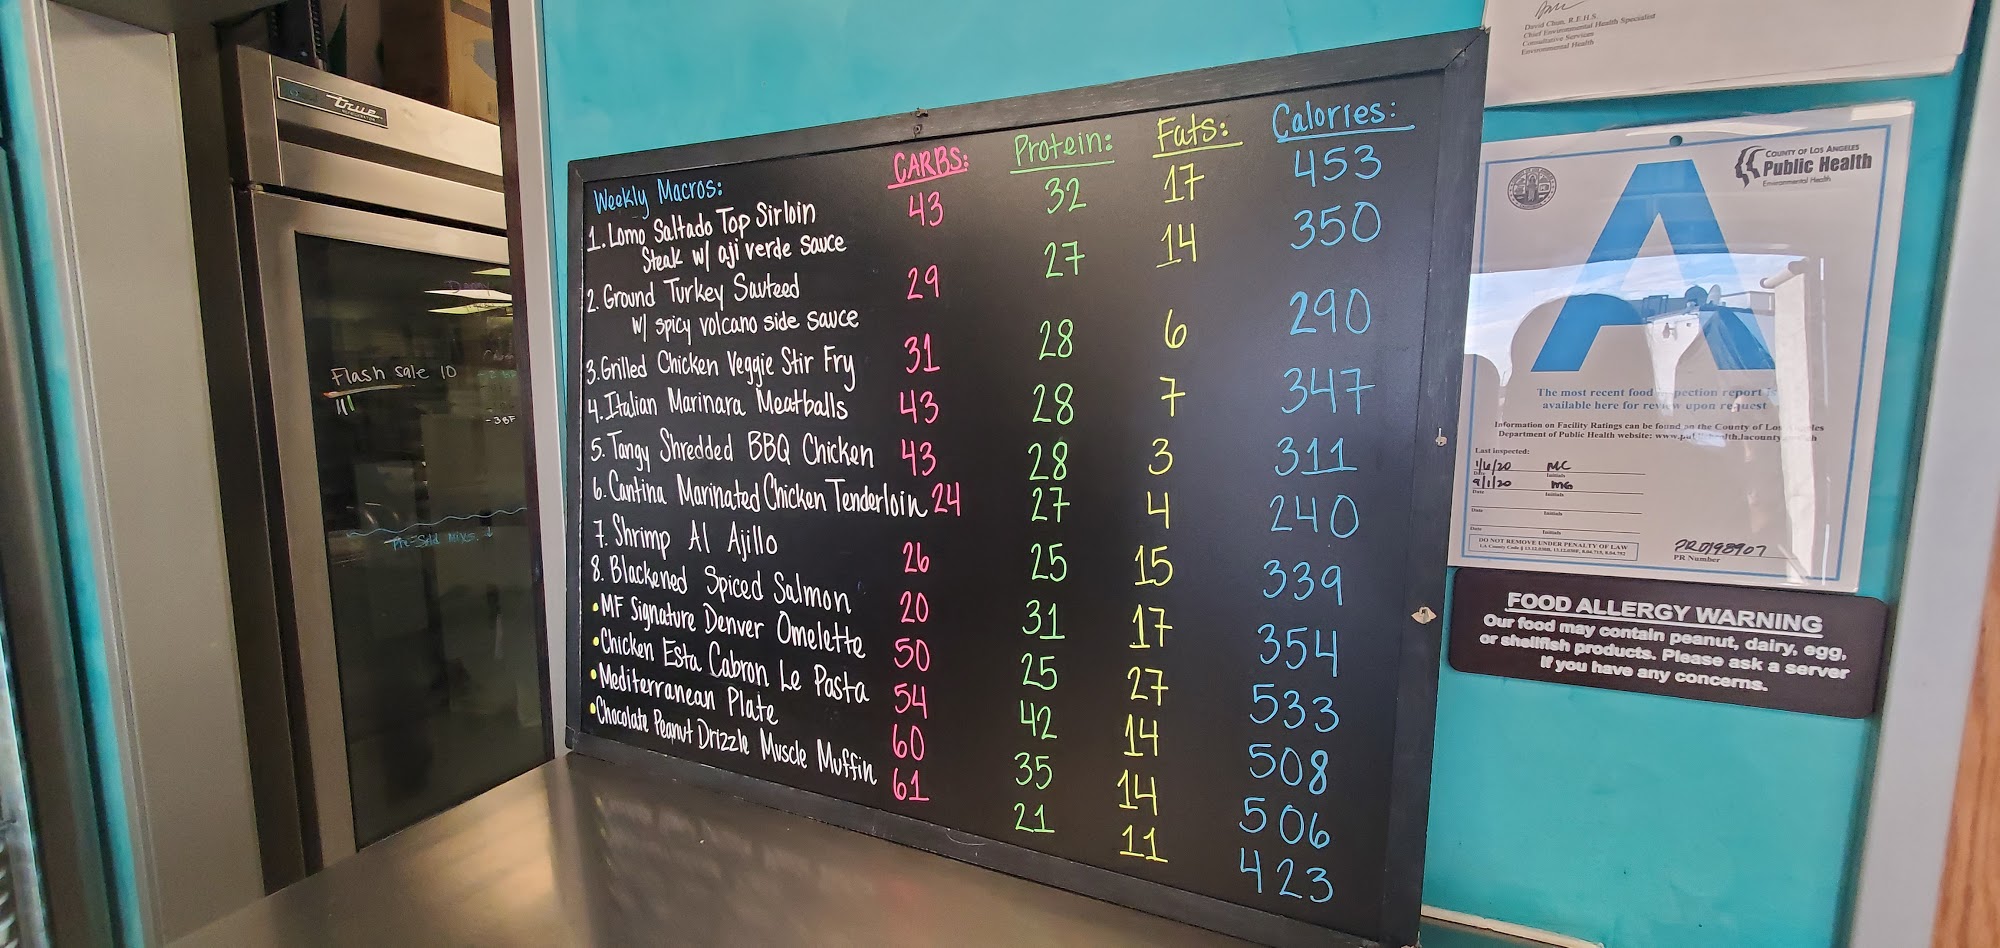 true
Flash sale 10
-38F
Pre-Sold Mixes ↓
Weekly Macros: CARBS: Protein: Fats: Calories:
1. Lomo Saltado Top Sirloin 43 32 17 453
Steak w/ aji verde sauce
2. Ground Turkey Sauteed 29 27 14 350
w/ spicy volcano side sauce
3. Grilled Chicken Veggie Stir Fry 31 28 6 290
4. Italian Marinara Meatballs 43 28 7 347
5. Tangy Shredded BBQ Chicken 43 28 3 311
6. Cantina Marinated Chicken Tenderloin 24 27 4 240
7. Shrimp Al Ajillo 26 25 15 339
8. Blackened Spiced Salmon 20 31 17 354
• MF Signature Denver Omelette 50 25 27 533
• Chicken Esta Cabron Le Pasta 54 42 14 508
• Mediterranean Plate 60 35 14 506
• Chocolate Peanut Drizzle Muscle Muffin 61 21 11 423
David Chun, R.E.H.S.
Chief Environmental Health Specialist
Consultative Services
Environmental Health
COUNTY OF LOS ANGELES
Public Health
Environmental Health
A
The most recent food inspection report is
available here for review upon request
Information on Facility Ratings can be found on the County of Los Angeles
Department of Public Health website:
Last inspected:
1/6/20 MC
Date Initials
9/1/20 MG
Date Initials
Date Initials
Date Initials
DO NOT REMOVE UNDER PENALTY OF LAW
PR0198907
PR Number
FOOD ALLERGY WARNING
Our food may contain peanut, dairy, egg,
or shellfish products. Please ask a server
if you have any concerns.